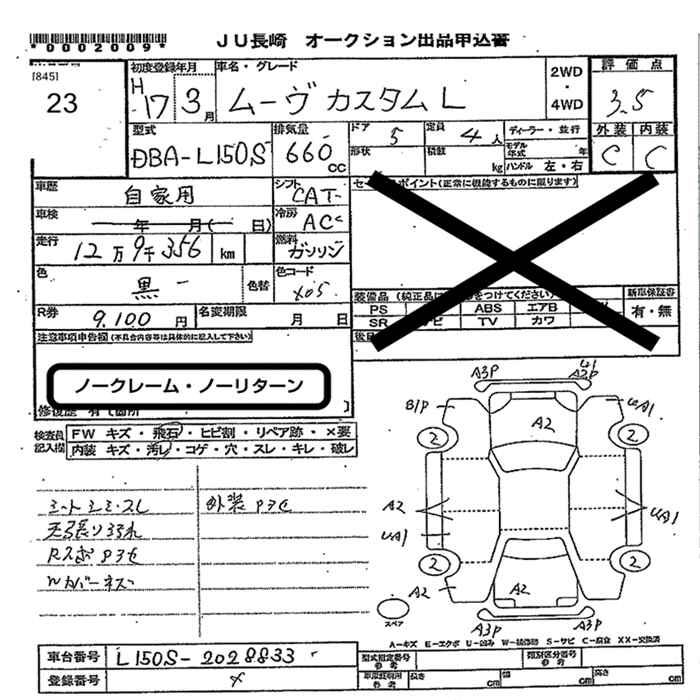 *0002009*
JU長崎 オークション出品申込書
[845]
23
初度登録年月
H 17 3月
車名・グレード
ムーヴ カスタム L
2WD
・
4WD
評価点
3.5
外装 内装
C C
型式
DBA-L150S
排気量
660 CC
ドア 5
定員 4人
ディーラー・並行
形状
積数 kg
モデル年式 年
ハンドル 左・右
車歴
自家用
シフト
CAT
車検
年 月( 日)
冷房
AC
走行
12万9千356 km
燃料
ガソリン
色
黒
色替
色コード
X05
R券
9.100 円
名変期限
月 日
セ ポイント(正常に機能するものに限ります)
装備品(純正品に をつけてください)
PS ABS エアB
SR ナビ TV カワ
新車保証書
有・無
注意事項申告欄(不具合内容等は具体的に記入して下さい)
ノークレーム・ノーリターン
修復歴 有 箇所
検査員記入欄
FW キズ・飛石・ヒビ割・リペア跡・×要
内装 キズ・汚レ・コゲ・穴・スレ・キレ・破レ
シートシミ・スレ
外装 P3セ
天張り汚れ
A3P
A2P
B/P
A2
UA1
2
2
A2
UA1
UA1
2
2
A2
A2
A3P
A3P
スペア
A-キズ E-エクボ U-凹み W-補修跡 S-サビ C-腐食 XX-交換済
車台番号
L150S-2028833
登録番号
型式指定番号
参考
類別区分番号
参考
長さ cm
幅 cm
高さ cm